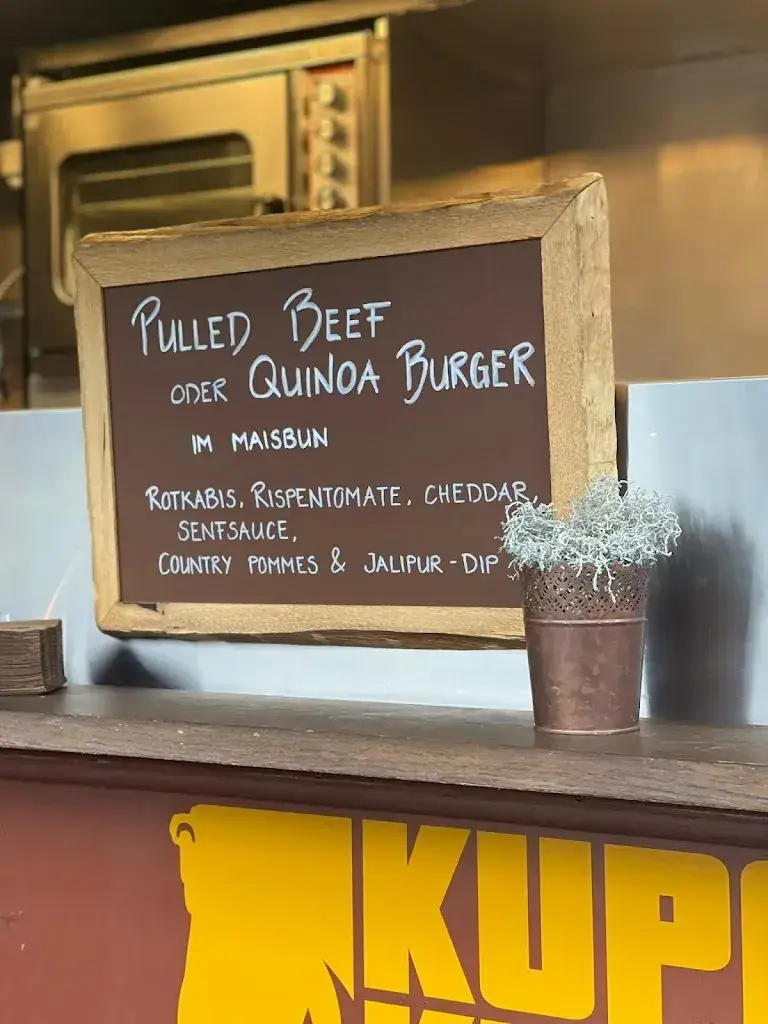 PULLED BEEF
ODER QUINOA BURGER
IM MAISBUN
ROTKABIS, RISPENTOMATE, CHEDDAR,
SENFSAUCE,
COUNTRY POMMES & JALIPUR-DIP